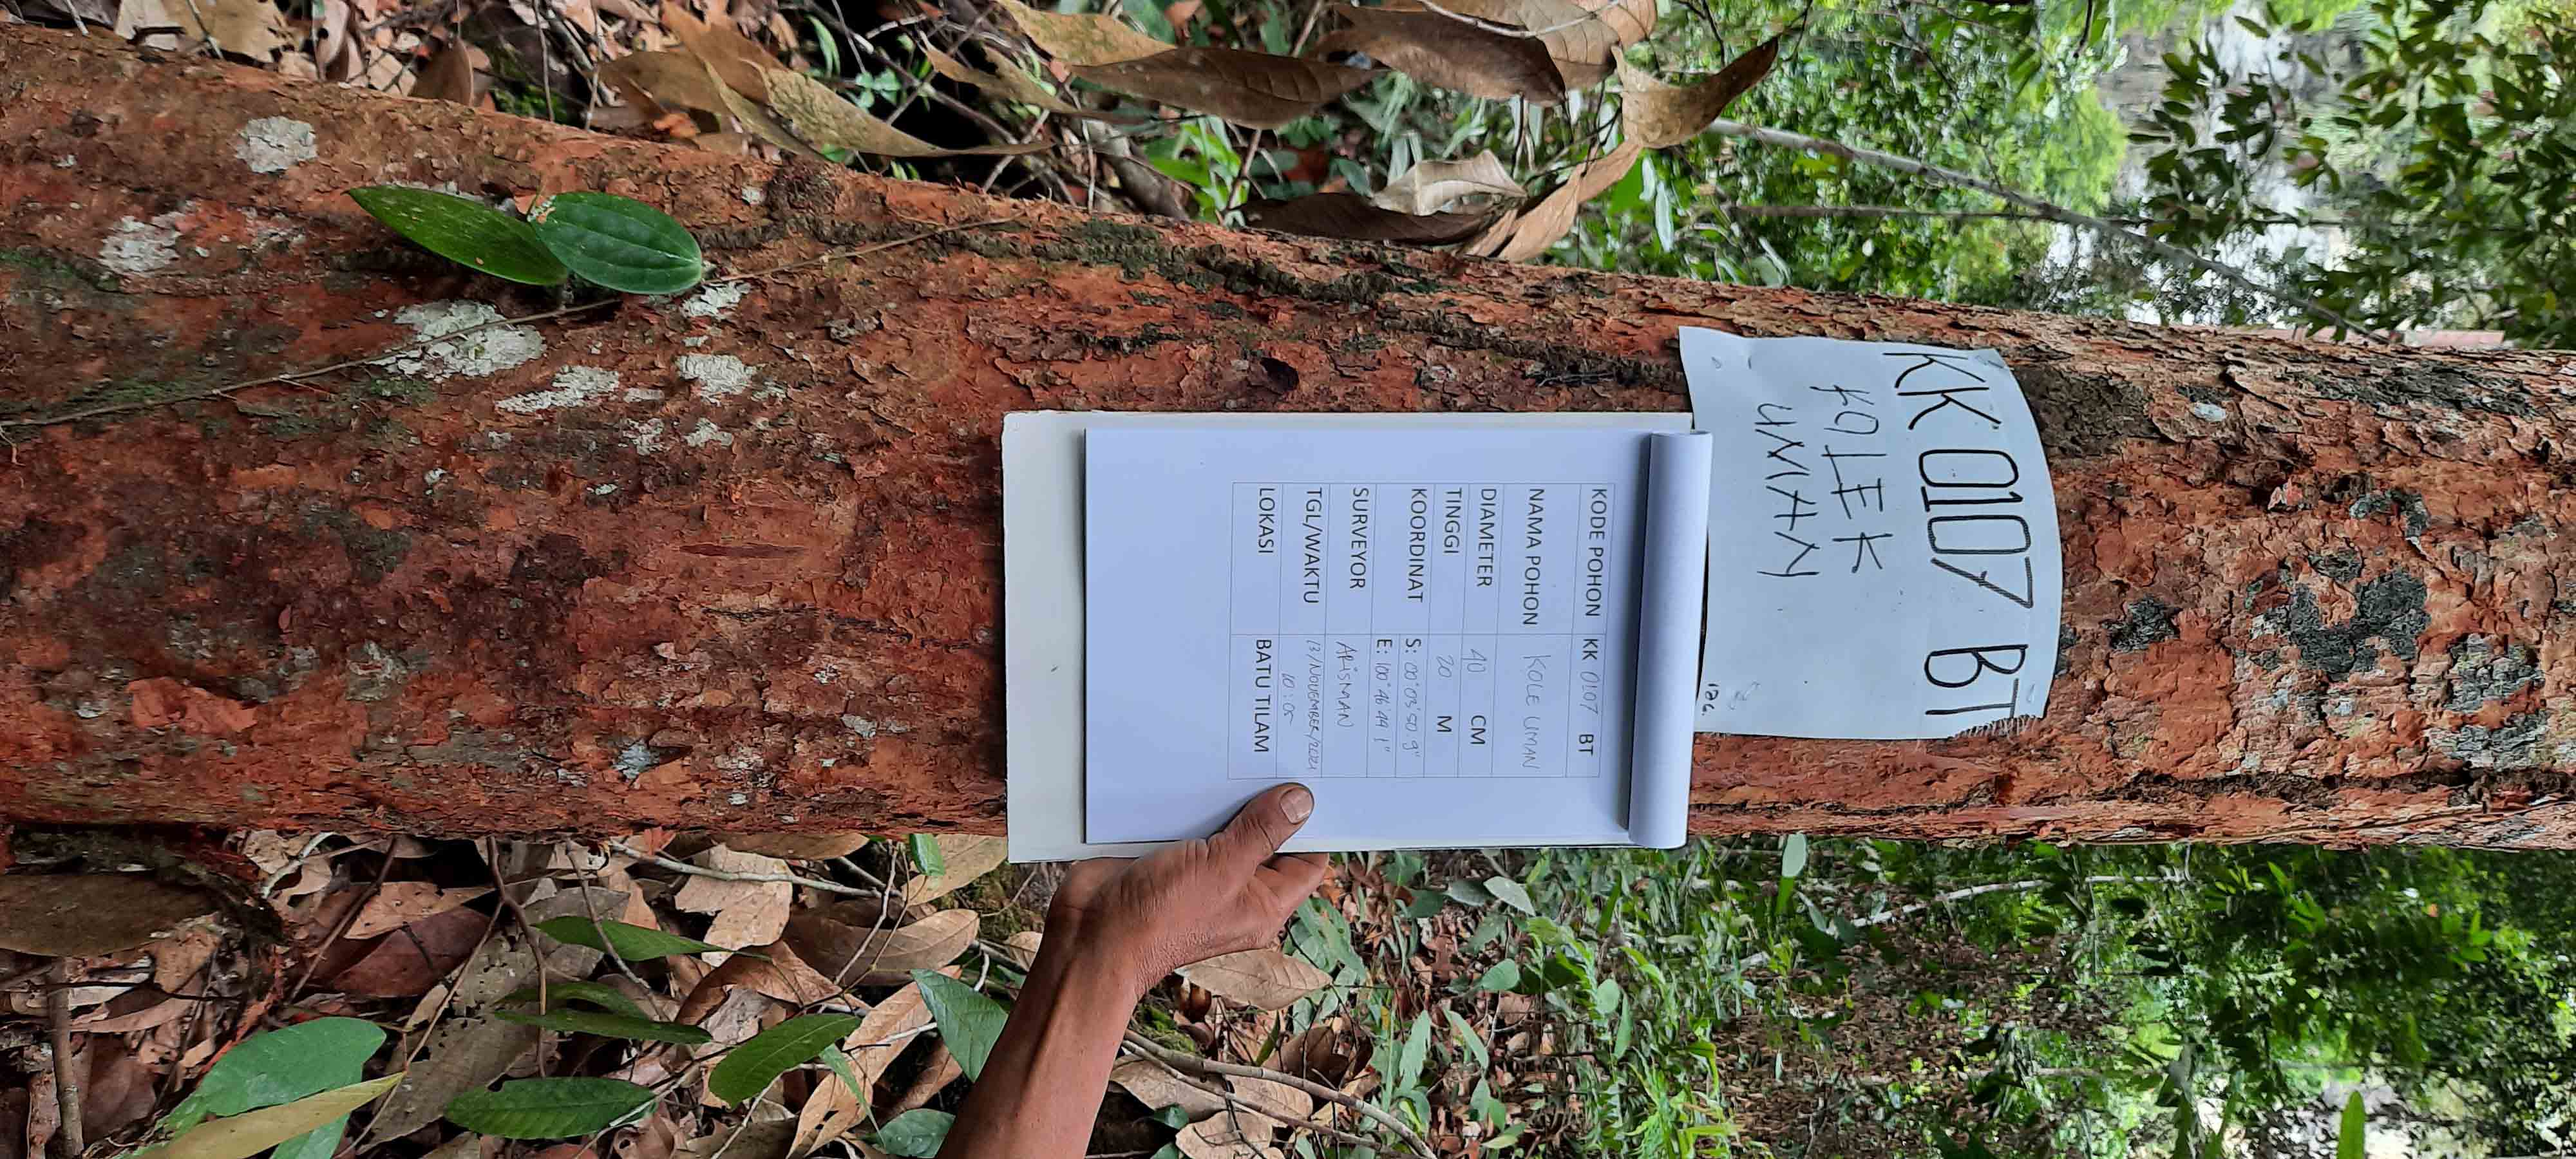 KK 0107 BT
KOLEK
UMAN
126.
KODE POHON KK 0107 BT
NAMA POHON KOLE UMAN
DIAMETER 40 CM
TINGGI 20 M
KOORDINAT S: 00° 03' 50.9"
E: 100° 46' 44 1"
SURVEYOR ARISMAN
TGL/WAKTU 13/NOVEMBER/2021
10:05
LOKASI BATU TILAM